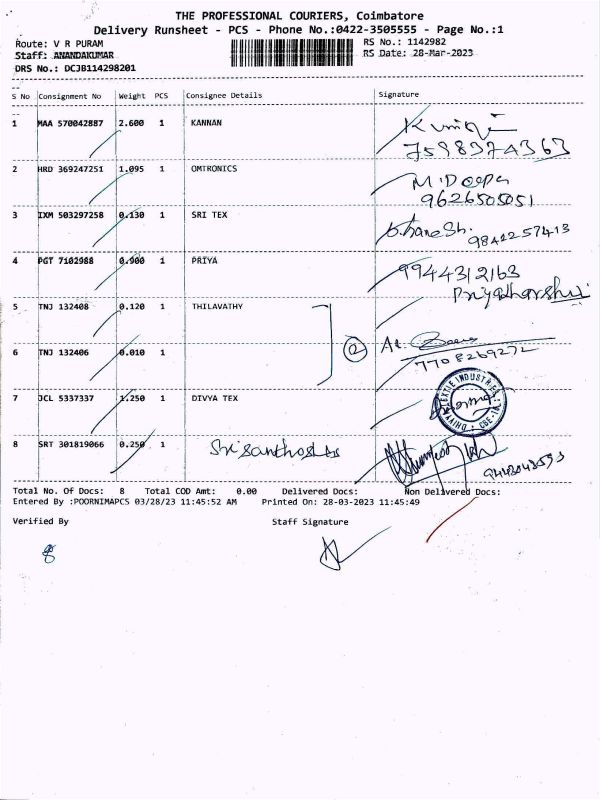 THE PROFESSIONAL COURIERS, Coimbatore
Delivery Runsheet - PCS - Phone No.:0422-3505555 - Page No.:1
Route: V R PURAM
RS No.: 1142982
Staff: ANANDAKUMAR
RS Date: 28-Mar-2023
DRS No.: DCJB114298201
S No Consignment No Weight PCS Consignee Details Signature
1 MAA 570042887 2.600 1 KANNAN
7598374363
2 HRD 369247251 1.095 1 OMTRONICS M.Deepa
9626505051
3 IXM 503297258 0.130 1 SRI TEX
9842257413
4 PGT 7102988 0.900 1 PRIYA 9944312163
Priyadharshii
5 TNJ 132408 0.120 1 THILAVATHY
2
6 TNJ 132406 0.010 1
7708269272
7 JCL 5337337 1.250 1 DIVYA TEX
8 SRT 301819066 0.250 1 Sri Santhosh
9443043593
Total No. Of Docs: 8 Total COD Amt: 0.00 Delivered Docs: Non Delivered Docs:
Entered By :POORNIMAPCS 03/28/23 11:45:52 AM Printed On: 28-03-2023 11:45:49
Verified By Staff Signature
8